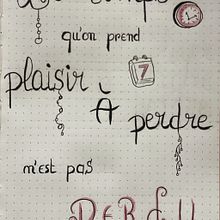 qu'on prend
7
plaisir
À
perdre
n'est pas
PERDU